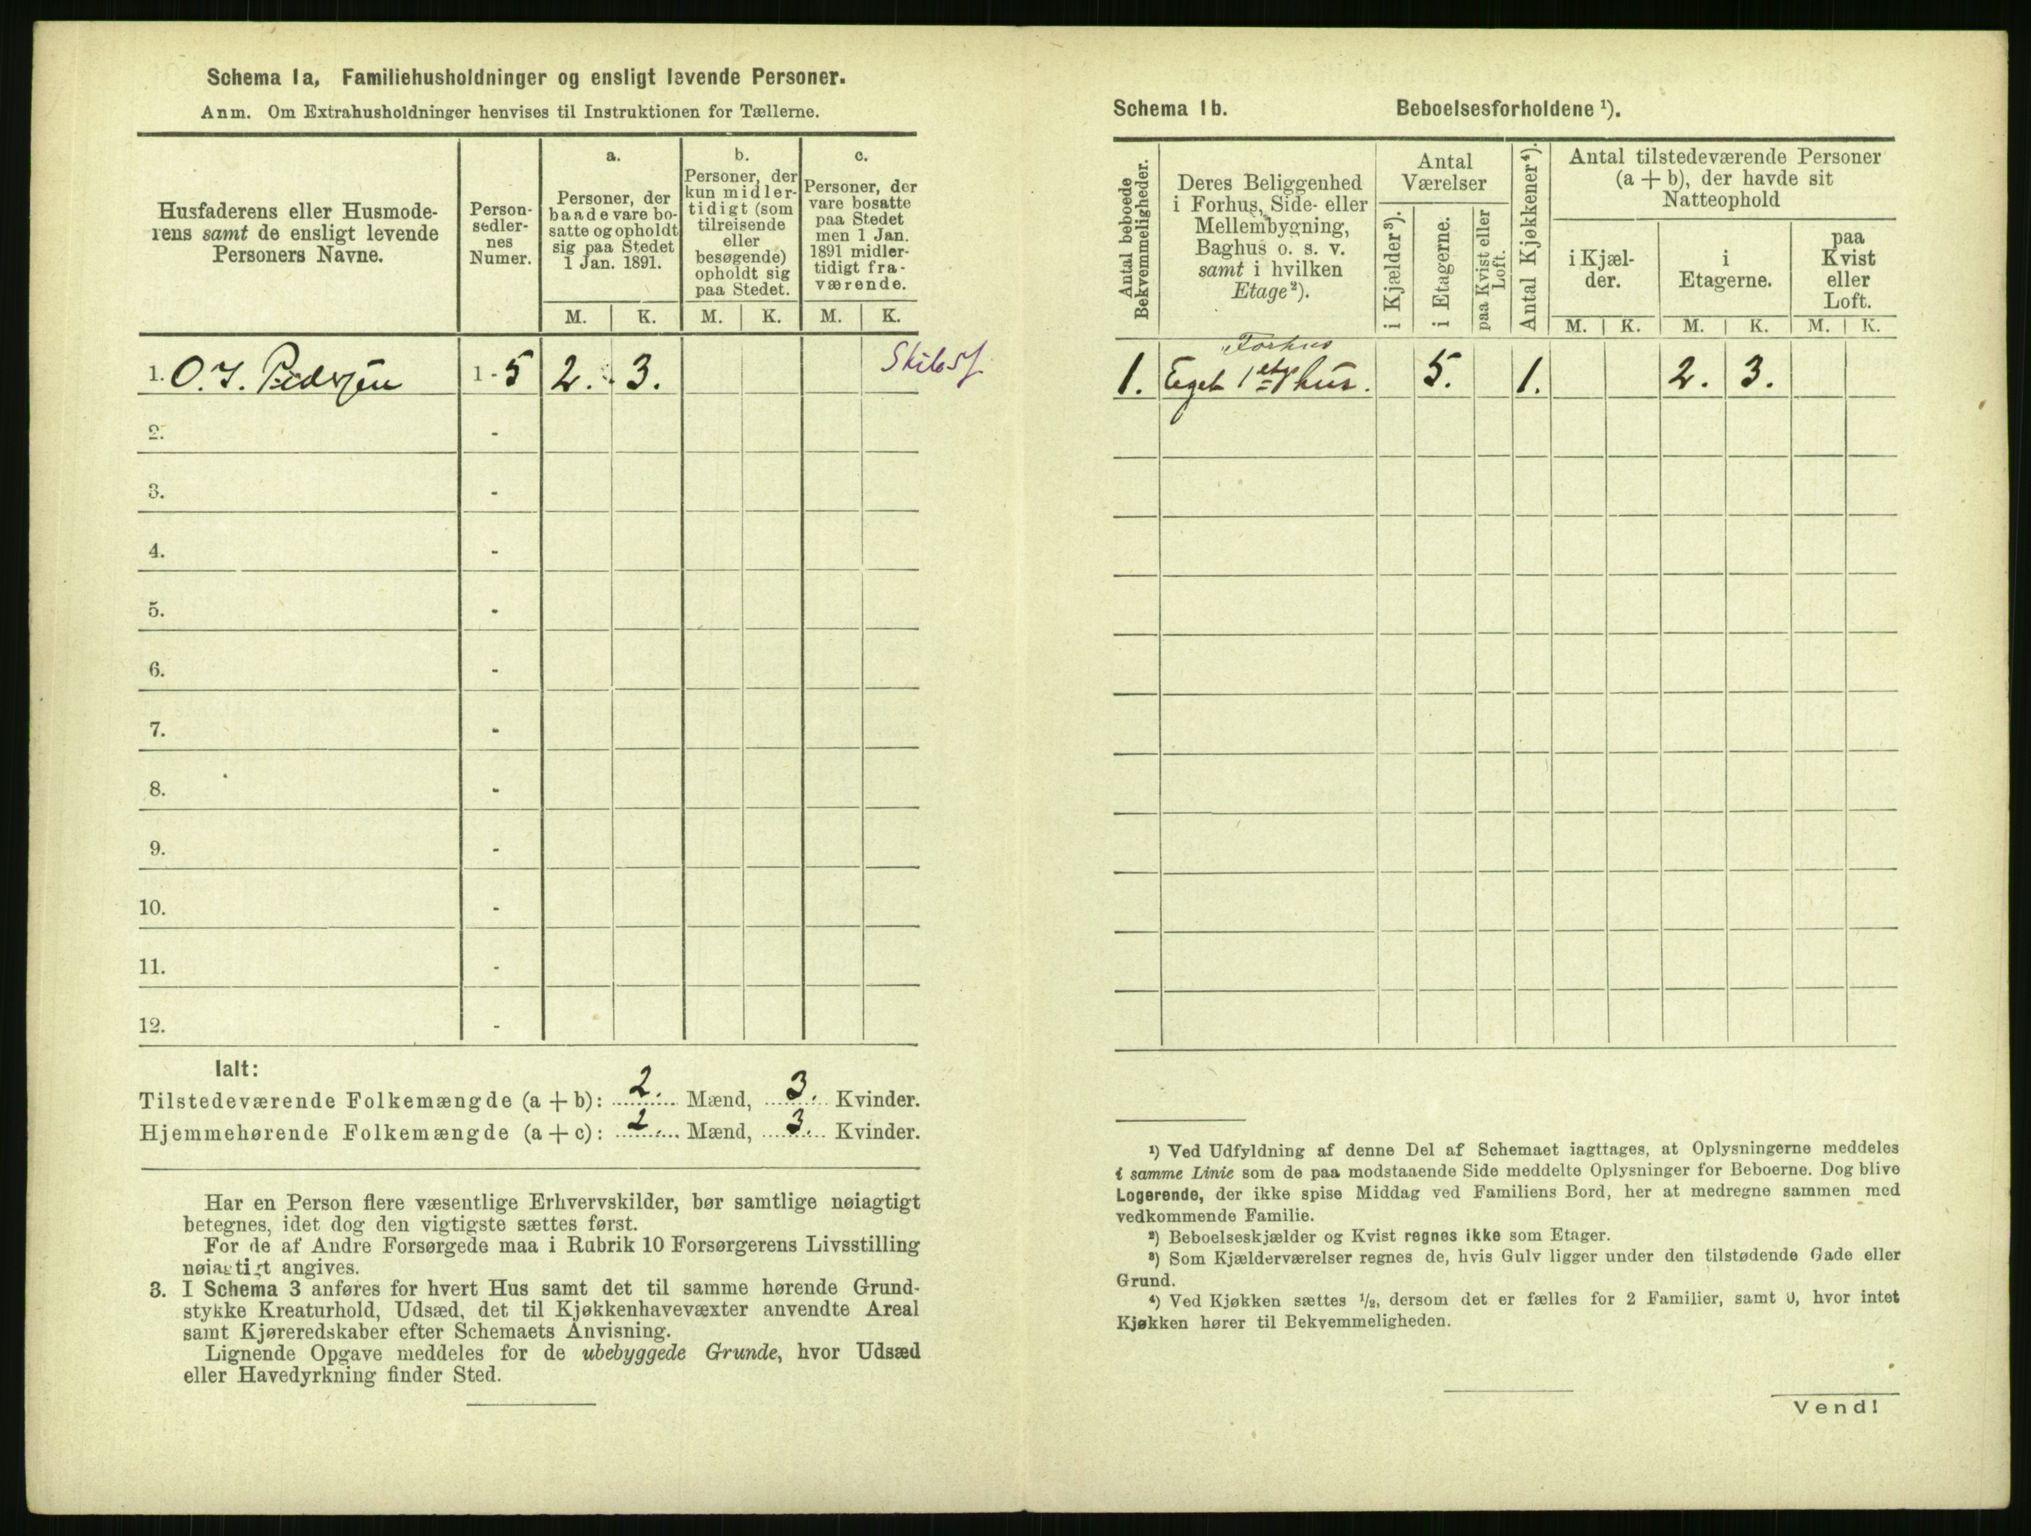 Schema 1a, Familiehusholdninger og ensligt levende Personer.
Anm. Om Extrahusholdninger henvises til Instruktionen for Tællerne.
Husfaderens eller Husmode-
rens samt de ensligt levende
Personers Navne.
Person-
sedler-
nes
Numer.
a.
Personer, der
baade vare bo-
satte og opholdt
sig paa Stedet
1 Jan. 1891.
b.
Personer, der
kun midler-
tidigt (som
tilreisende
eller
besøgende)
opholdt sig
paa Stedet.
c.
Personer, der
vare bosatte
paa Stedet
men 1 Jan.
1891 midler-
tidigt fra-
værende.
M. K. M. K. M. K.
1. O. I. Pedersen 1 - 5 2. 3.
2. -
3. -
4. -
5. -
6. -
7. -
8. -
9. -
10. -
11. -
12. -
Ialt:
Tilstedeværende Folkemængde (a + b): 2. Mænd, 3. Kvinder.
Hjemmehørende Folkemængde (a + c): 2. Mænd, 3. Kvinder.
Har en Person flere væsentlige Erhvervskilder, bør samtlige nøiagtigt
betegnes, idet dog den vigtigste sættes først.
For de af Andre Forsørgede maa i Rubrik 10 Forsørgerens Livsstilling
nøiagtigt angives.
3. I Schema 3 anføres for hvert Hus samt det til samme hørende Grund-
stykke Kreaturhold, Udsæd, det til Kjøkkenhavevæxter anvendte Areal
samt Kjøreredskaber efter Schemaets Anvisning.
Lignende Opgave meddeles for de ubebyggede Grunde, hvor Udsæd
eller Havedyrkning finder Sted.
Schema 1b. Beboelsesforholdene ¹).
Antal beboede
Bekvemmeligheder.
Deres Beliggenhed
i Forhus, Side- eller
Mellembygning,
Baghus o. s. v.
samt i hvilken
Etage²).
Antal
Værelser
i Kjælder³).
i Etagerne.
paa Kvist eller
Loft.
Antal Kjøkkener⁴).
Antal tilstedeværende Personer
(a + b), der havde sit
Natteophold
i Kjæl-
der.
i
Etagerne.
paa
Kvist
eller
Loft.
M. K. M. K. M. K.
Forhus
1. Eget 1 etg hus. 5. 1. 2. 3.
¹) Ved Udfyldning af denne Del af Schemaet iagttages, at Oplysningerne meddeles
i samme Linie som de paa modstaaende Side meddelte Oplysninger for Beboerne. Dog blive
Logerende, der ikke spise Middag ved Familiens Bord, her at medregne sammen med
vedkommende Familie.
²) Beboelseskjælder og Kvist regnes ikke som Etager.
³) Som Kjælderværelser regnes de, hvis Gulv ligger under den tilstødende Gade eller
Grund.
⁴) Ved Kjøkken sættes ½, dersom det er fælles for 2 Familier, samt 0, hvor intet
Kjøkken hører til Bekvemmeligheden.
Vend!